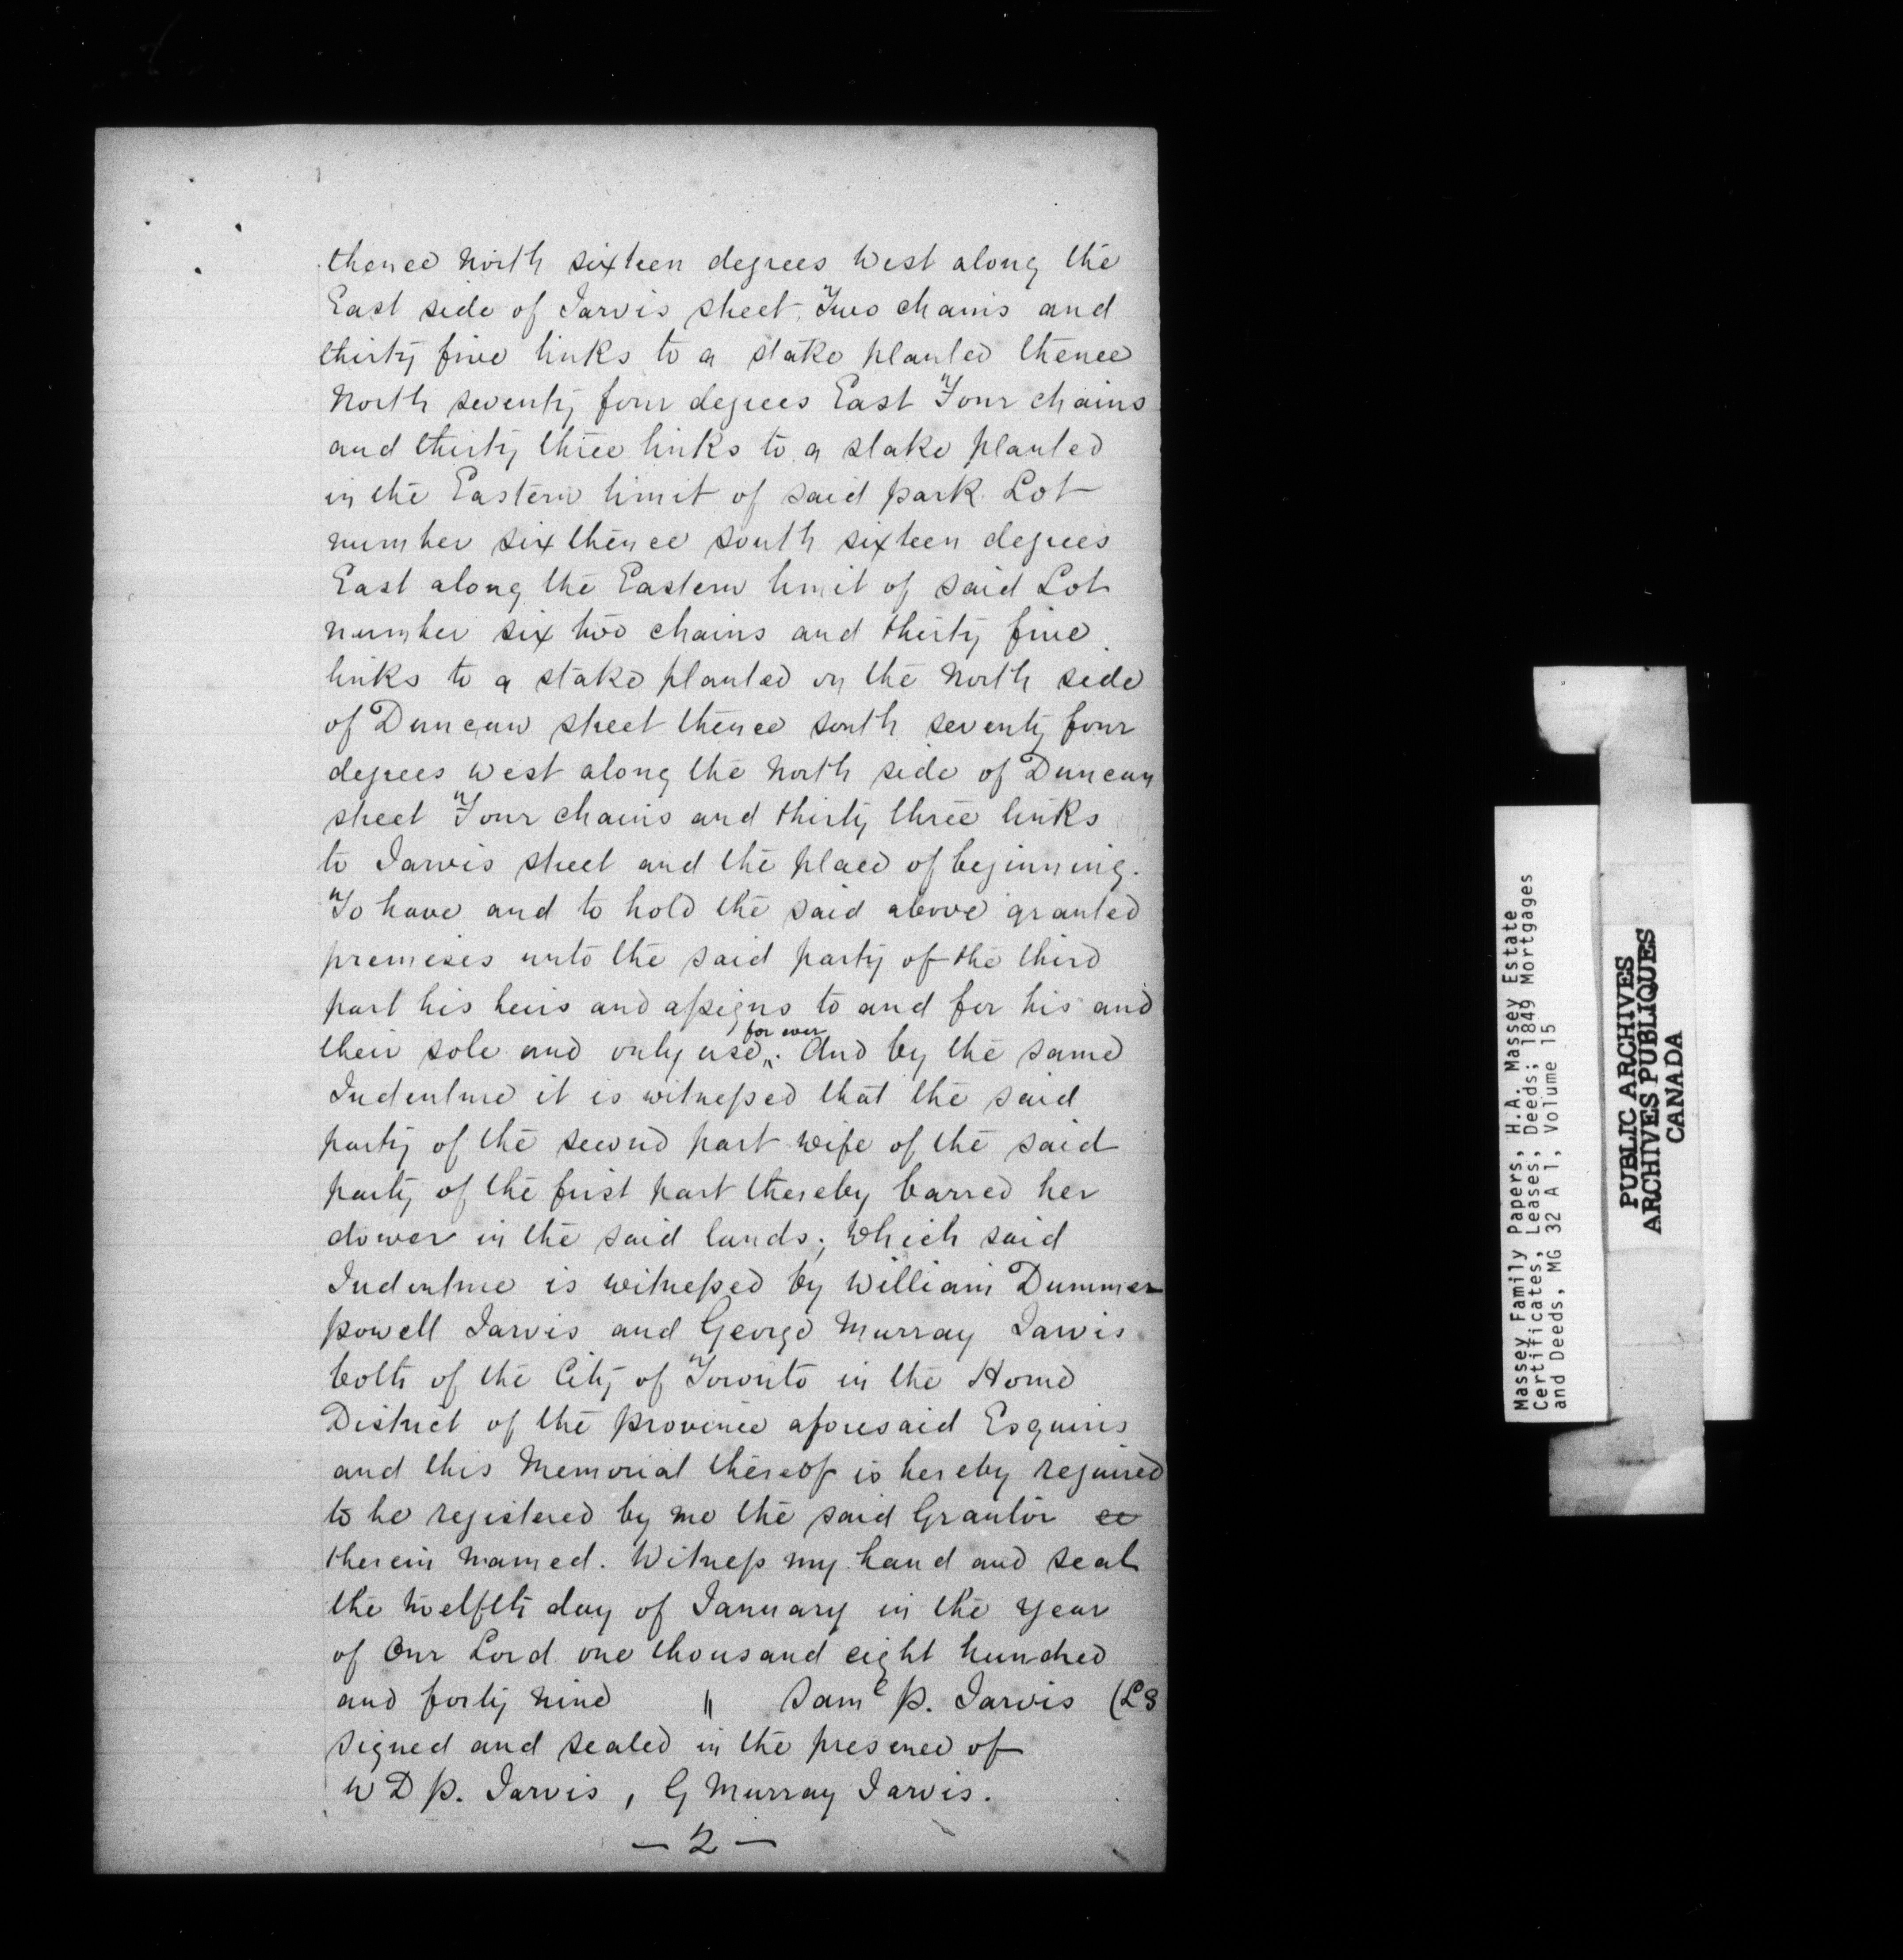 thence North sixteen degrees West along the
East side of Jarvis street, Two chains and
thirty five links to a stake planted thence
North seventy four degrees East Four chains
and thirty three links to a stake planted
in the Eastern limit of said park Lot
number six thence south sixteen degrees
East along the Eastern limit of said Lot
number six two chains and thirty five
links to a stake planted on the North side
of Duncan street thence south seventy four
degrees West along the North side of Duncan
street Four chains and thirty three links
to Jarvis street and the place of beginning.
To have and to hold the said above granted
premises unto the said party of the third
part his heirs and assigns to and for his and
their sole and only use for ever. And by the same
Indenture it is witnessed that the said
party of the second part wife of the said
party of the first part thereby barred her
dower in the said lands; Which said
Indenture is witnessed by William Dummer
Powell Jarvis and George Murray Jarvis
both of the City of Toronto in the Home
District of the province aforesaid Esquires
and this Memorial thereof is hereby required
to be registered by me the said Grantor
therein named. Witness my hand and seal
the twelfth day of January in the year
of Our Lord one thousand eight hundred
and forty nine " Saml P. Jarvis (LS
Signed and sealed in the presence of
W D P. Jarvis, G Murray Jarvis.
— 2 —
Massey Family Papers, H.A. Massey Estate
Certificates, Leases, Deeds; 1849 Mortgages
and Deeds, MG 32 A 1, Volume 15
PUBLIC ARCHIVES
ARCHIVES PUBLIQUES
CANADA